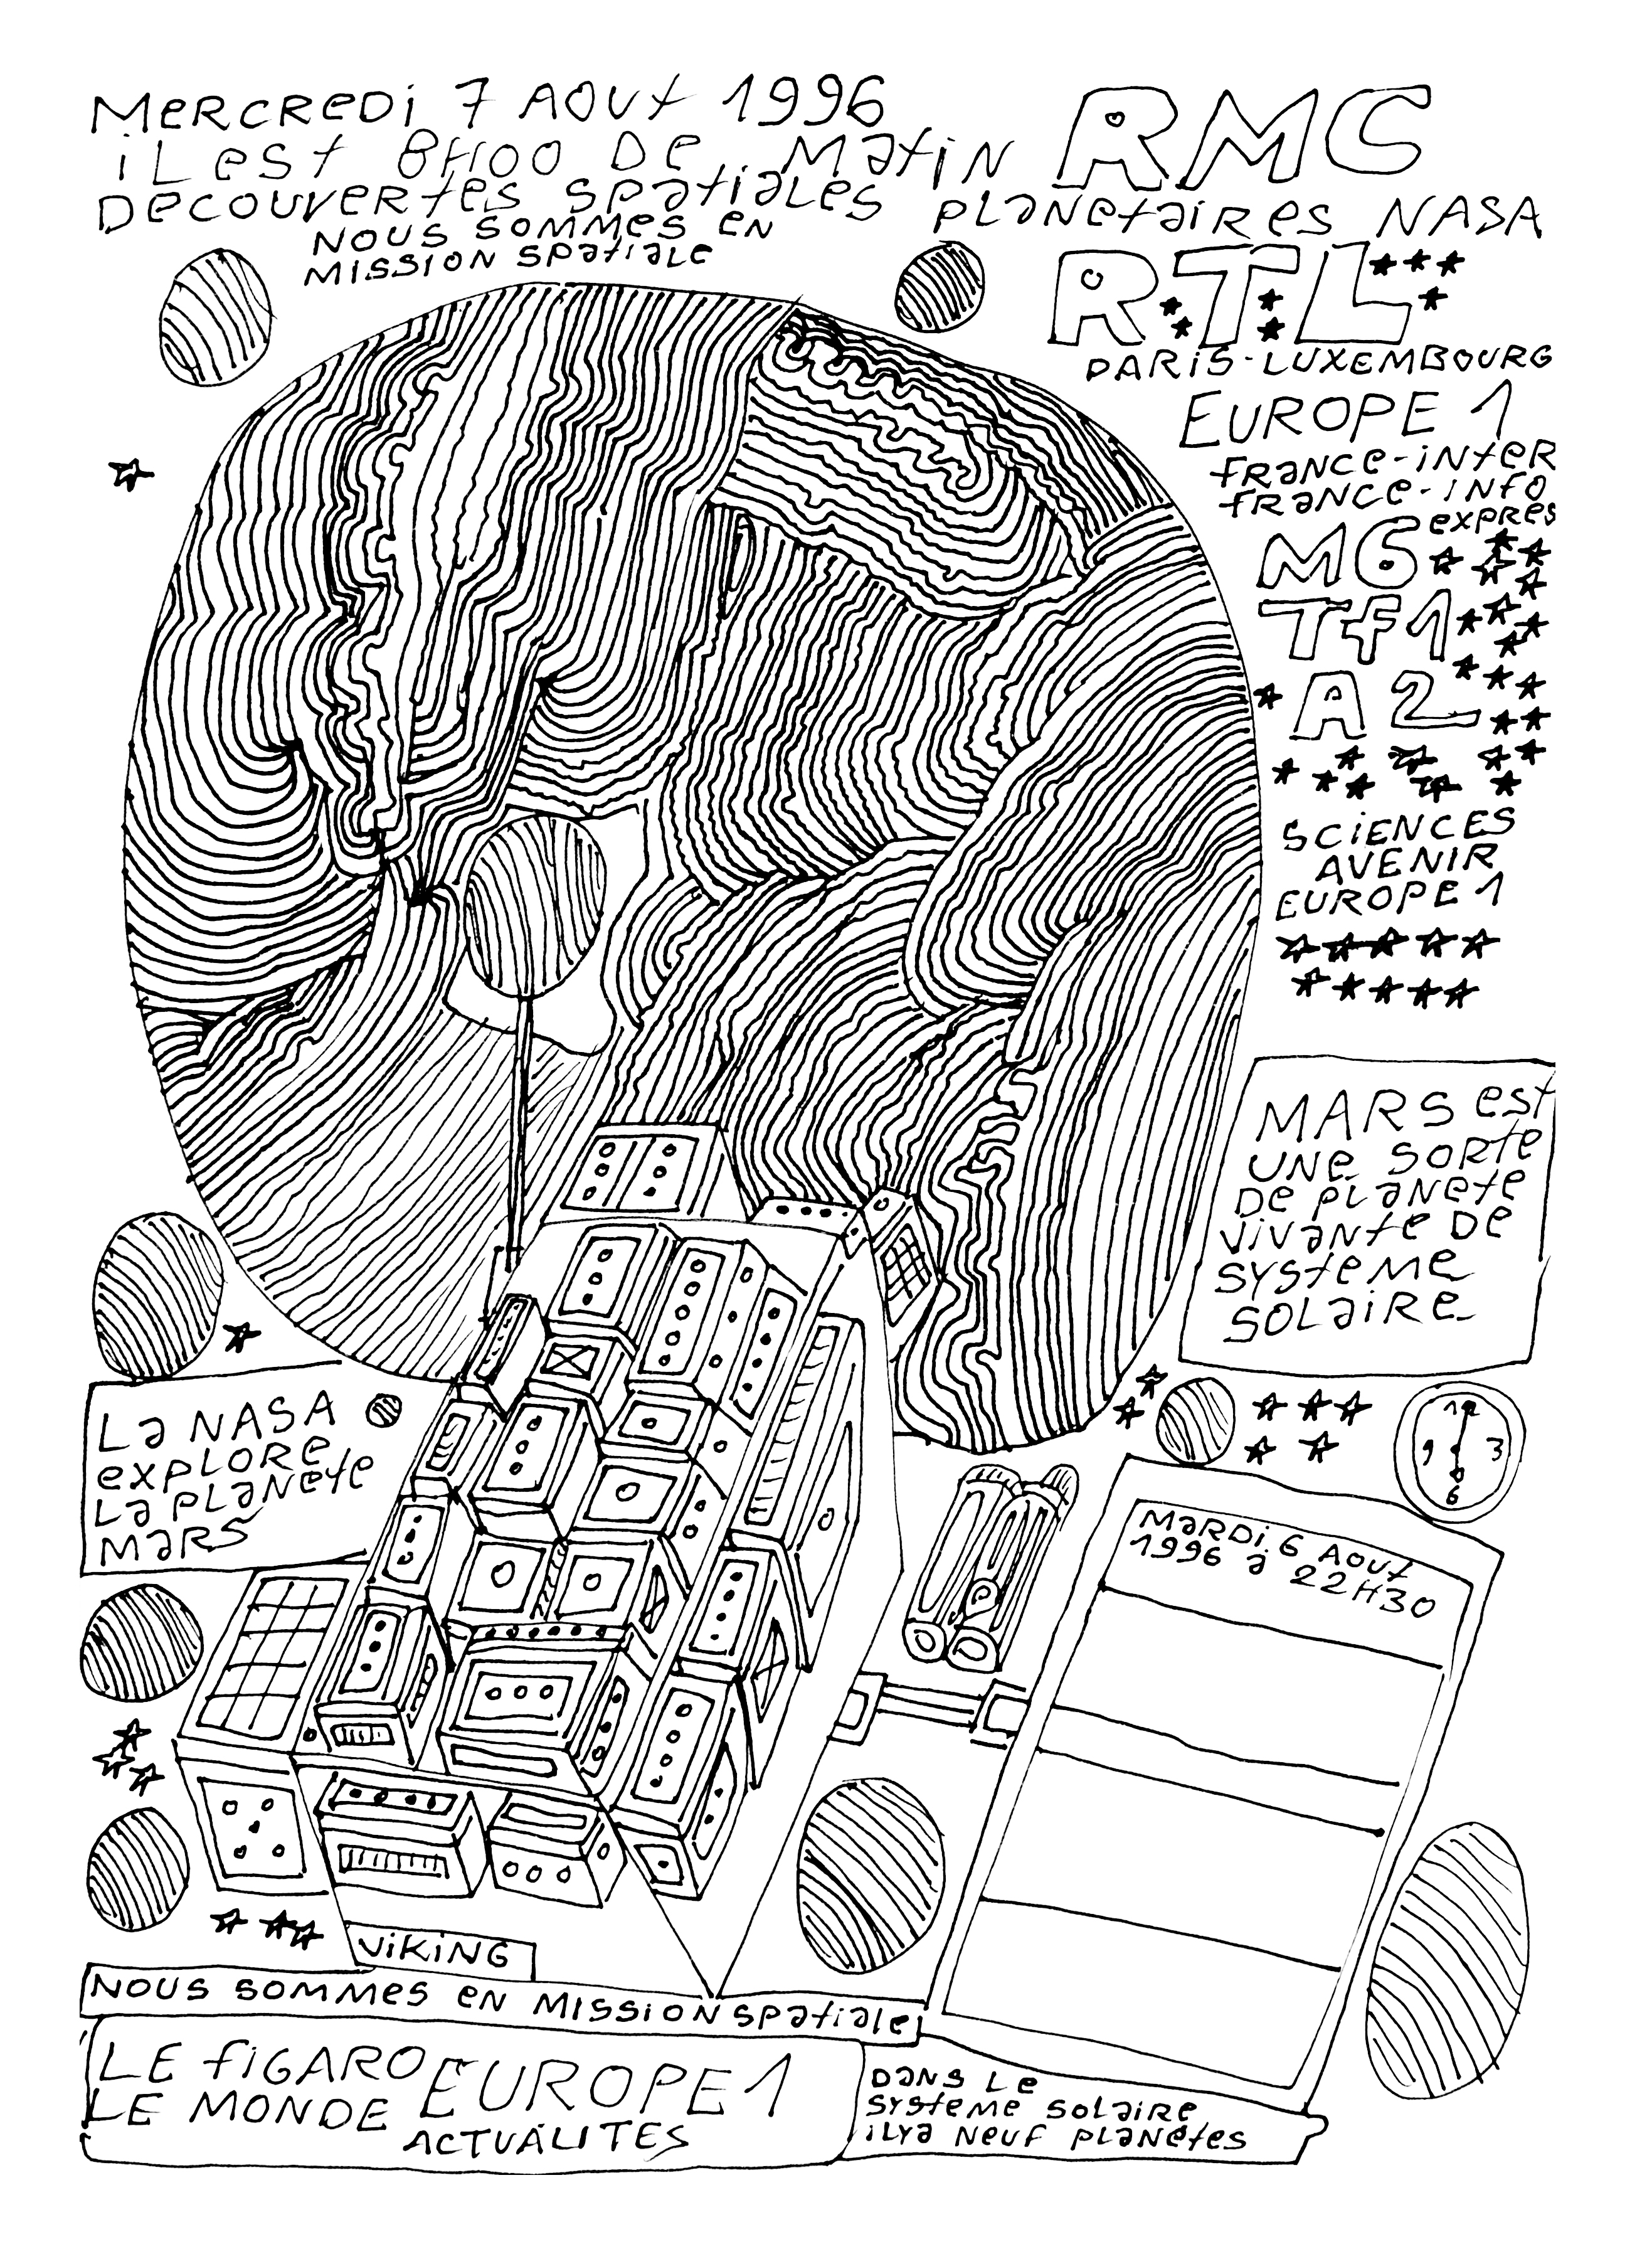 MeRCReDi 7 AOUt 1996
iL est 8H00 De Matin RMC
DeCOUVeRtes spatiales planetaires NASA
NOUS SOMMes eN
MISSION spatiale
R.T.L
PARiS-LUXEMBOURG
EUROPE 1
fRaNCe-iNteR
fRaNCe-iNfO
expres
M6
Tf1
A2
SCiENCES
AVENIR
EUROPE 1
MARS est
UNe SORte
De planete
vivante De
systeme
SOLaiRe
La NASA
expLORe
La pLaNete
MaRS
12
9 3
6
MaRDi 6 AOUt
1996 à 22H30
ViKiNG
NOUS SOMMes eN MISSiON spatiale
LE fiGARO EUROPE 1
LE MONDE
ACTUALITES
DaNS Le
systeme solaire
iLya NeUf planetes